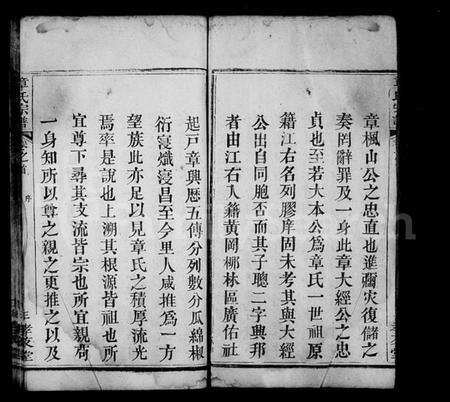 章楓山公之忠直也進彌灾復儲之
奏罔辭罪及一身此章大經公之忠
貞也至若大本公爲章氏一世祖原
籍江右名列膠庠固未考其與大經
公出自同胞否而其子聰二字興邦
者由江右入籍黃岡梛林區廣佑社
起戸章興曆五傳分列數分瓜綿椒
衍寖熾寖昌至今里人咸推爲一方
望族此亦足以見章氏之積厚流光
焉率是說也上溯其根源皆祖也所
宜尊下尋其支流皆宗也所宜親苟
一身知所以尊之親之更推之以及
章氏宗譜
卷之首
序
孝友堂